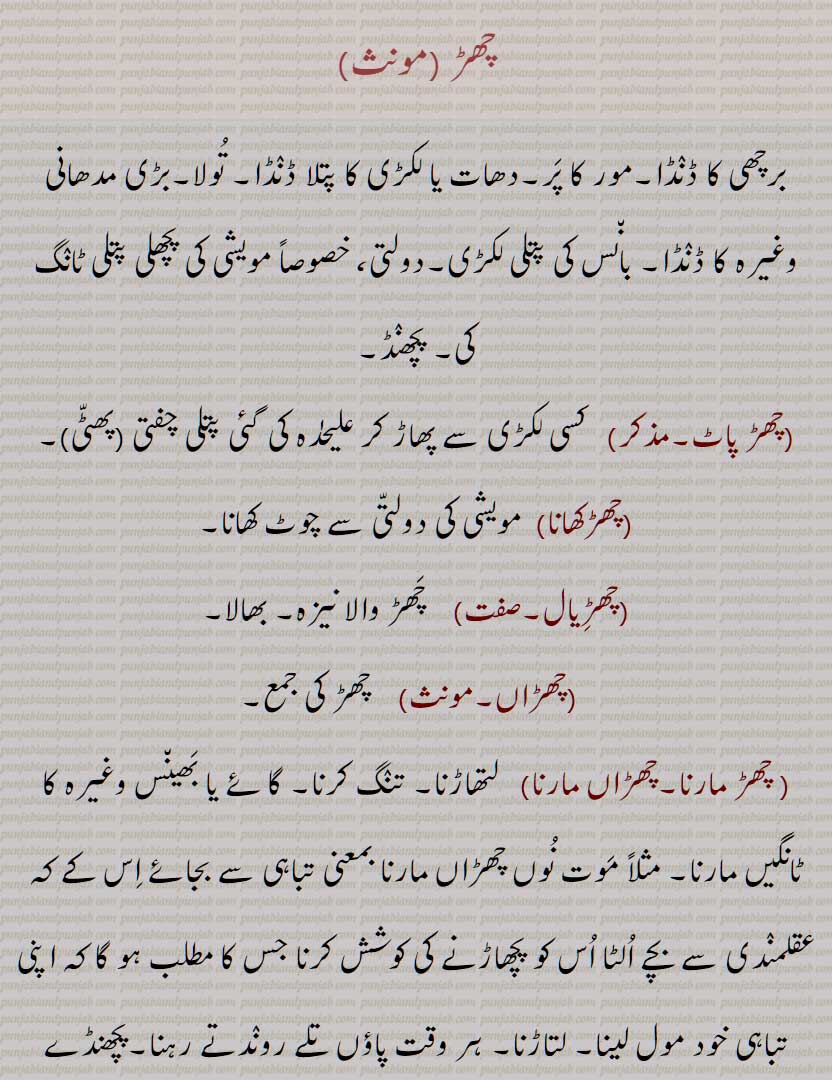 چھڑ (مونث)
برچھی کا ڈنڈا۔مور کا پَر۔دھات یا لکڑی کا پتلا ڈنڈا۔ تُولا۔بڑی مدھانی
وغیرہ کا ڈنڈا۔ بانّس کی پتلی لکڑی۔دولتی، خصوصاً مویشی کی پچھلی پتلی ٹانگ
کی۔ پچھنڈ۔
(چھڑ پاٹ۔مذکر) کسی لکڑی سے پھاڑ کر علیحٰدہ کی گئی پتلی چفتی (پھٹّی)۔
(چھڑکھانا) مویشی کی دولتّی سے چوٹ کھانا۔
(چھڑِیال۔صفت) چَھڑ والا نیزہ۔ بھالا۔
(چھڑاں۔مونث) چھڑ کی جمع۔
( چھڑ مارنا۔چھڑاں مارنا) لتھاڑنا۔ تنگ کرنا۔ گائے یا بَھینّس وغیرہ کا
ٹانگیں مارنا۔ مثلاً مَوت نُوں چھڑاں مارنا بمعنی تباہی سے بجائے اِس کے کہ
عقلمندی سے بچے اُلٹا اُس کو پچھاڑنے کی کوشش کرنا جس کا مطلب ہو گا کہ اپنی
تباہی خود مول لینا۔ لتاڑنا۔ ہر وقت پاؤں تلے روندتے رہنا۔پچھنڈے